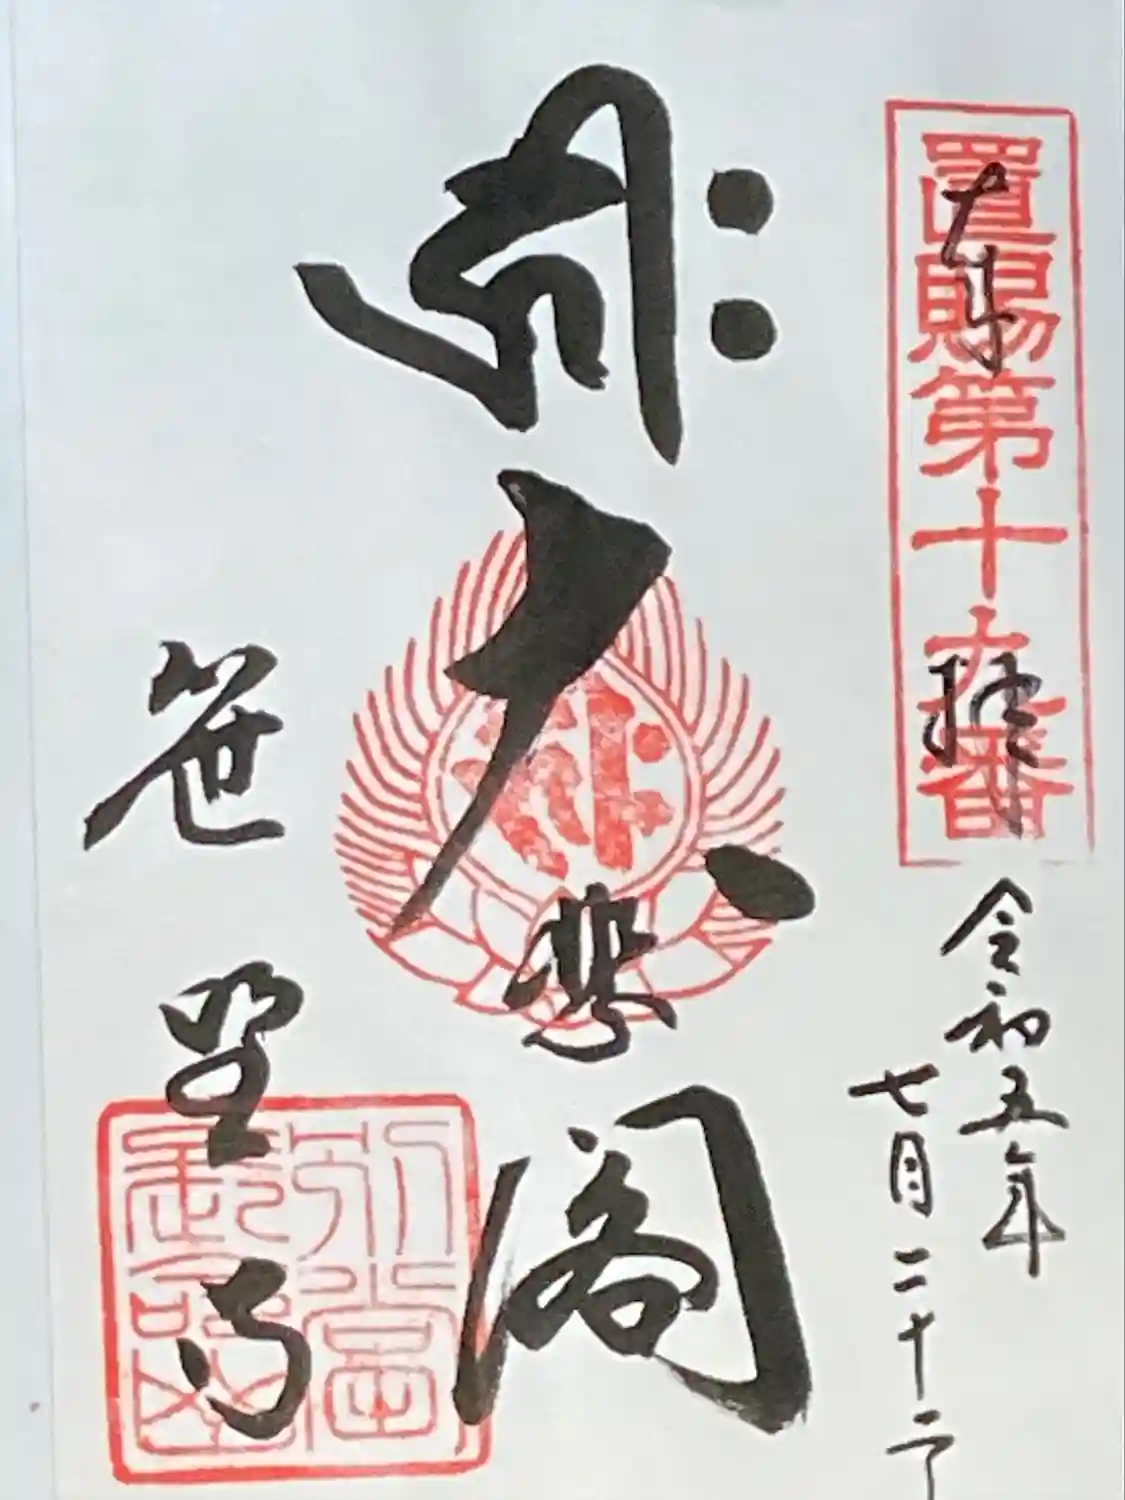 置賜第十九番
奉拝
令和五年
七月二十二日
大悲閣
笹野寺